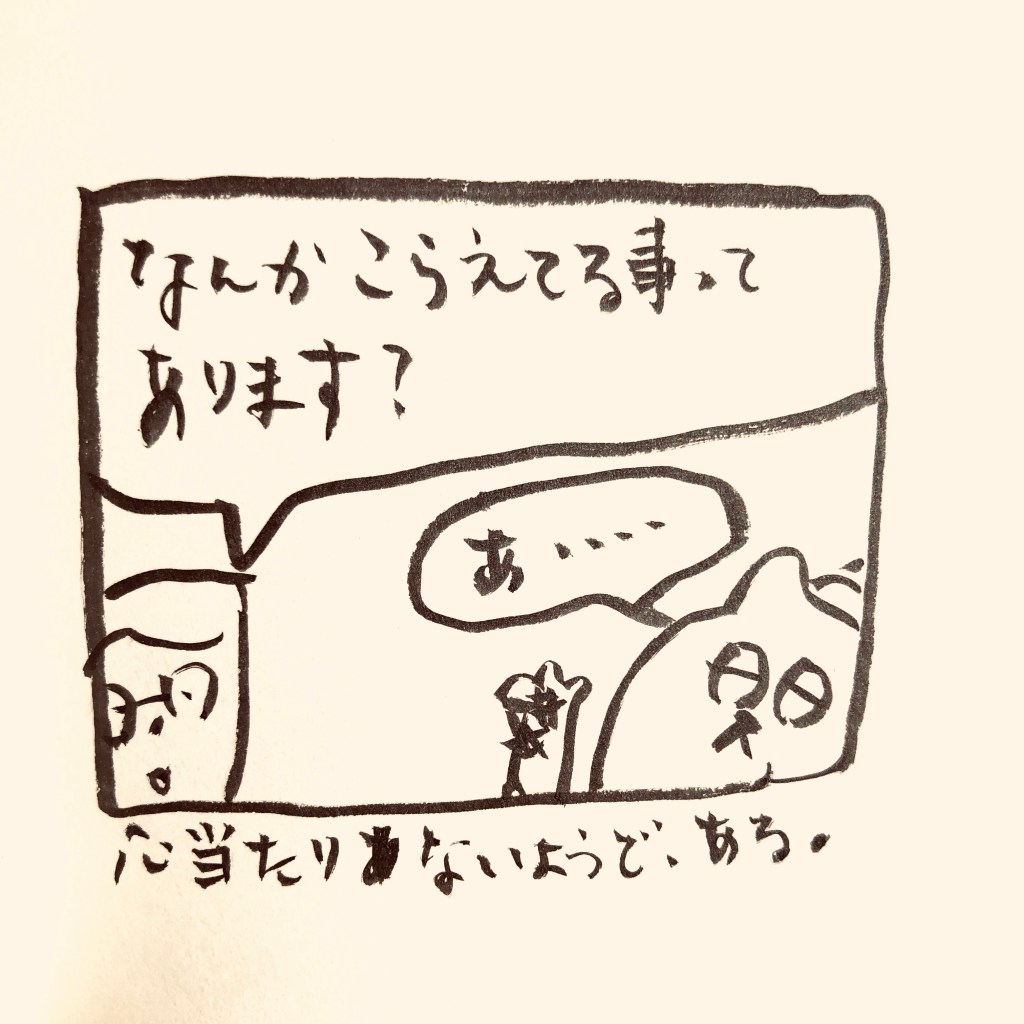 なんかこらえてる事って
あります?
あ.....
心当たりないようで、ある。